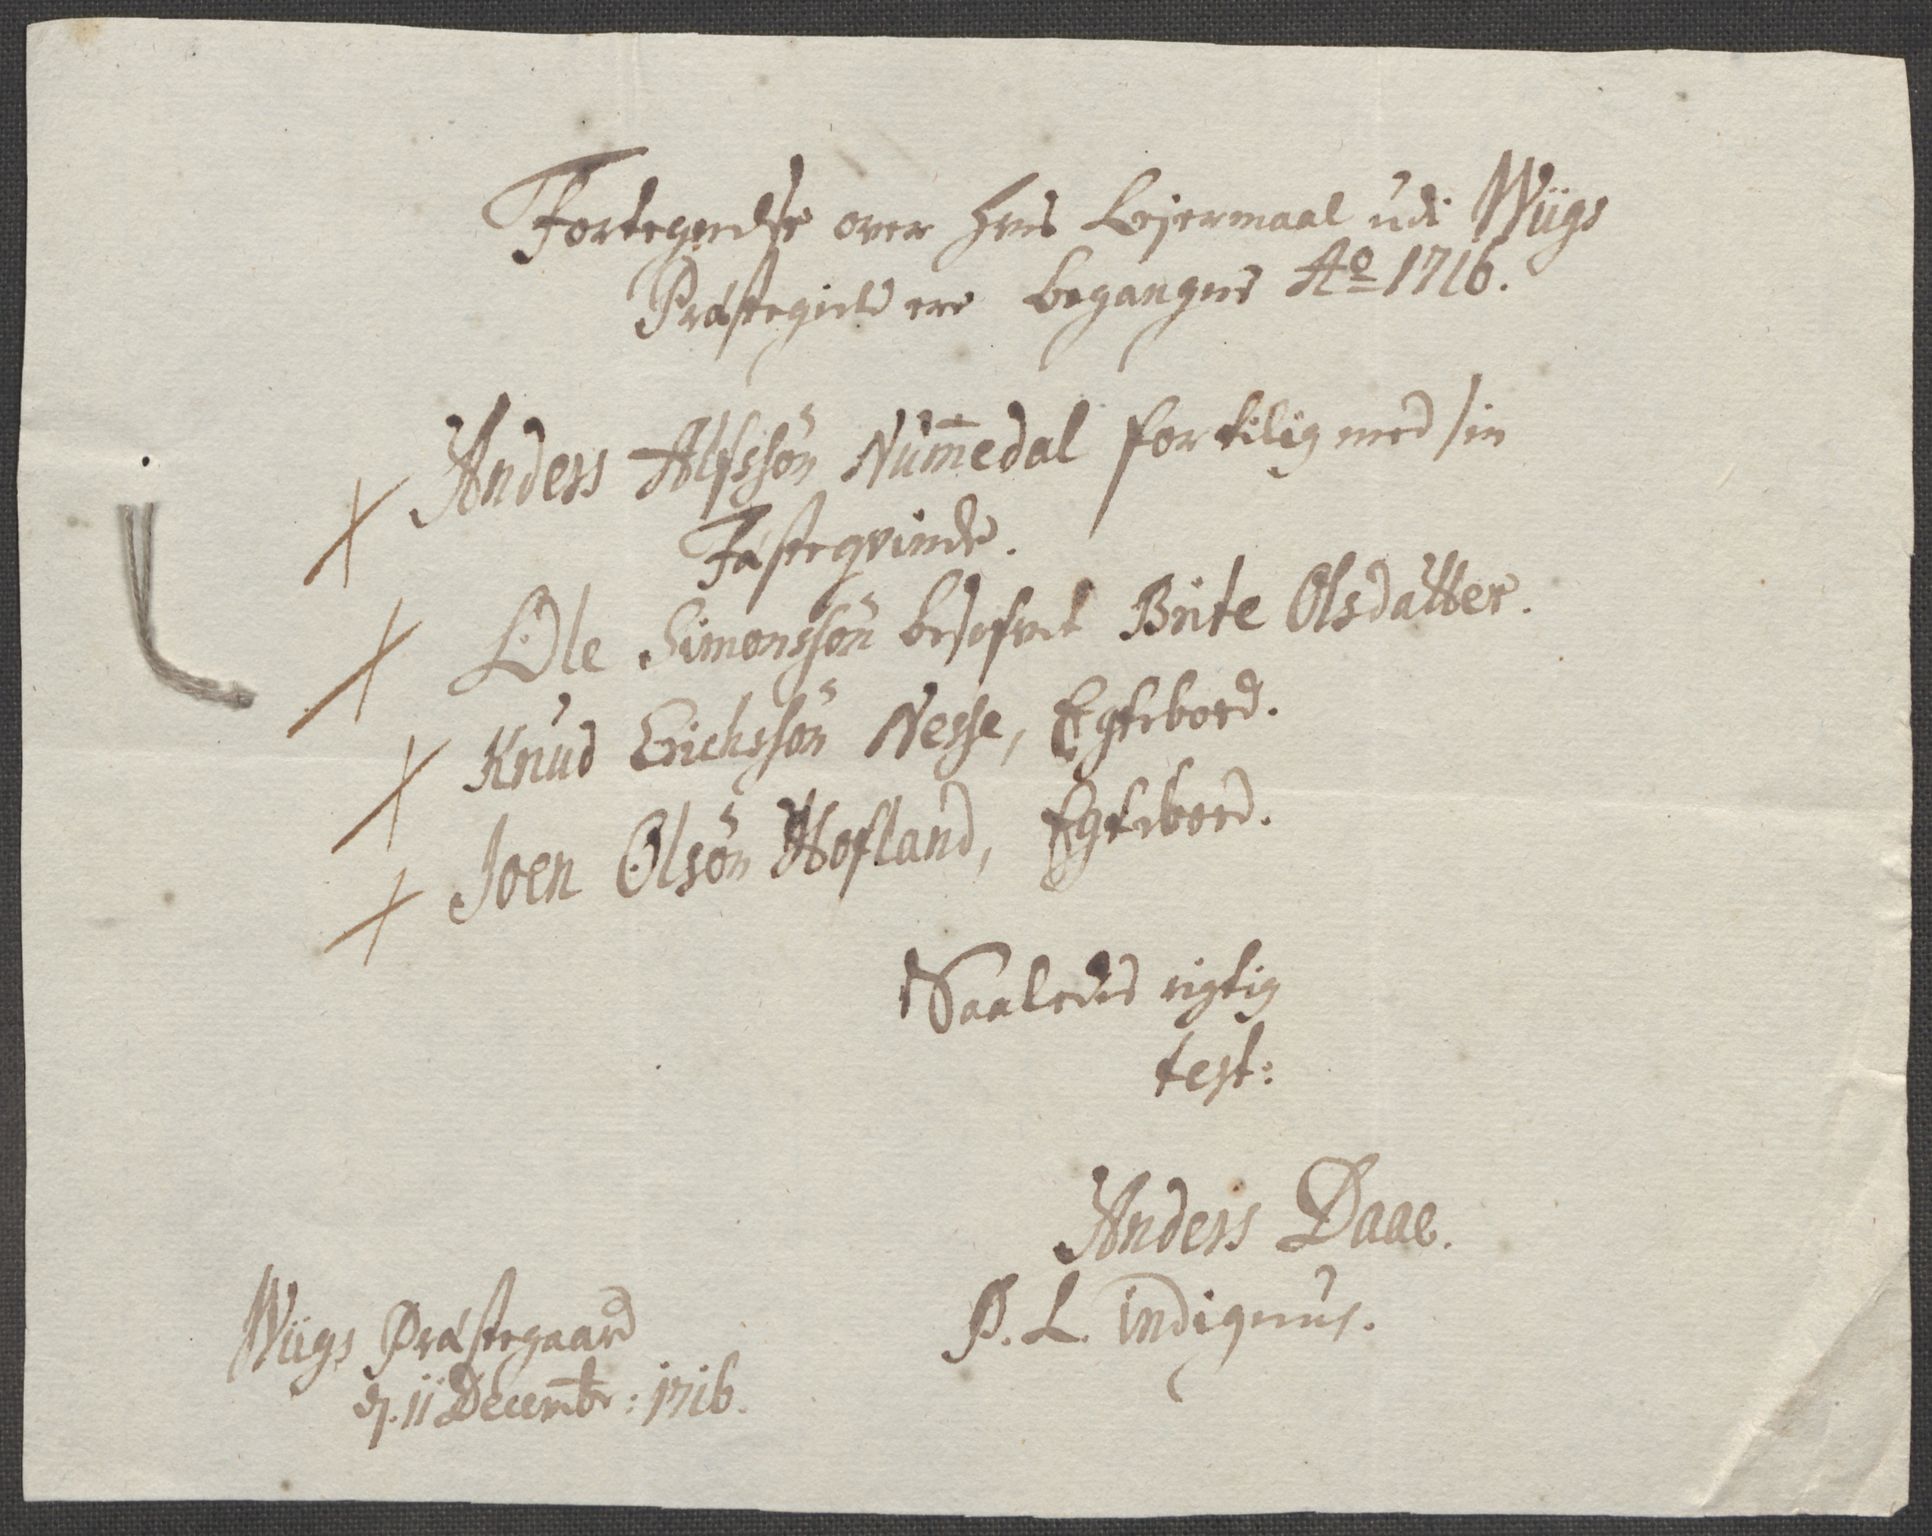 Fortegnelse over hvis Lejermaal udi Wiigs
Præstegield ere begangne Ao 1716.
Anders Alfssøn Num̅edal for tilig med sin
Fæsteqvinde.
Ole Simonssøn besofvet Brite Olsdatter.
Knud Erichssøn Nesse, Egtebord.
Joen Olsøn Hofland, Egtebord.
Saaledes rigtig
test:
Anders Daae.
P. L. indignus.
Wiigs Præstegaard
d. 11 Decembr: 1716.